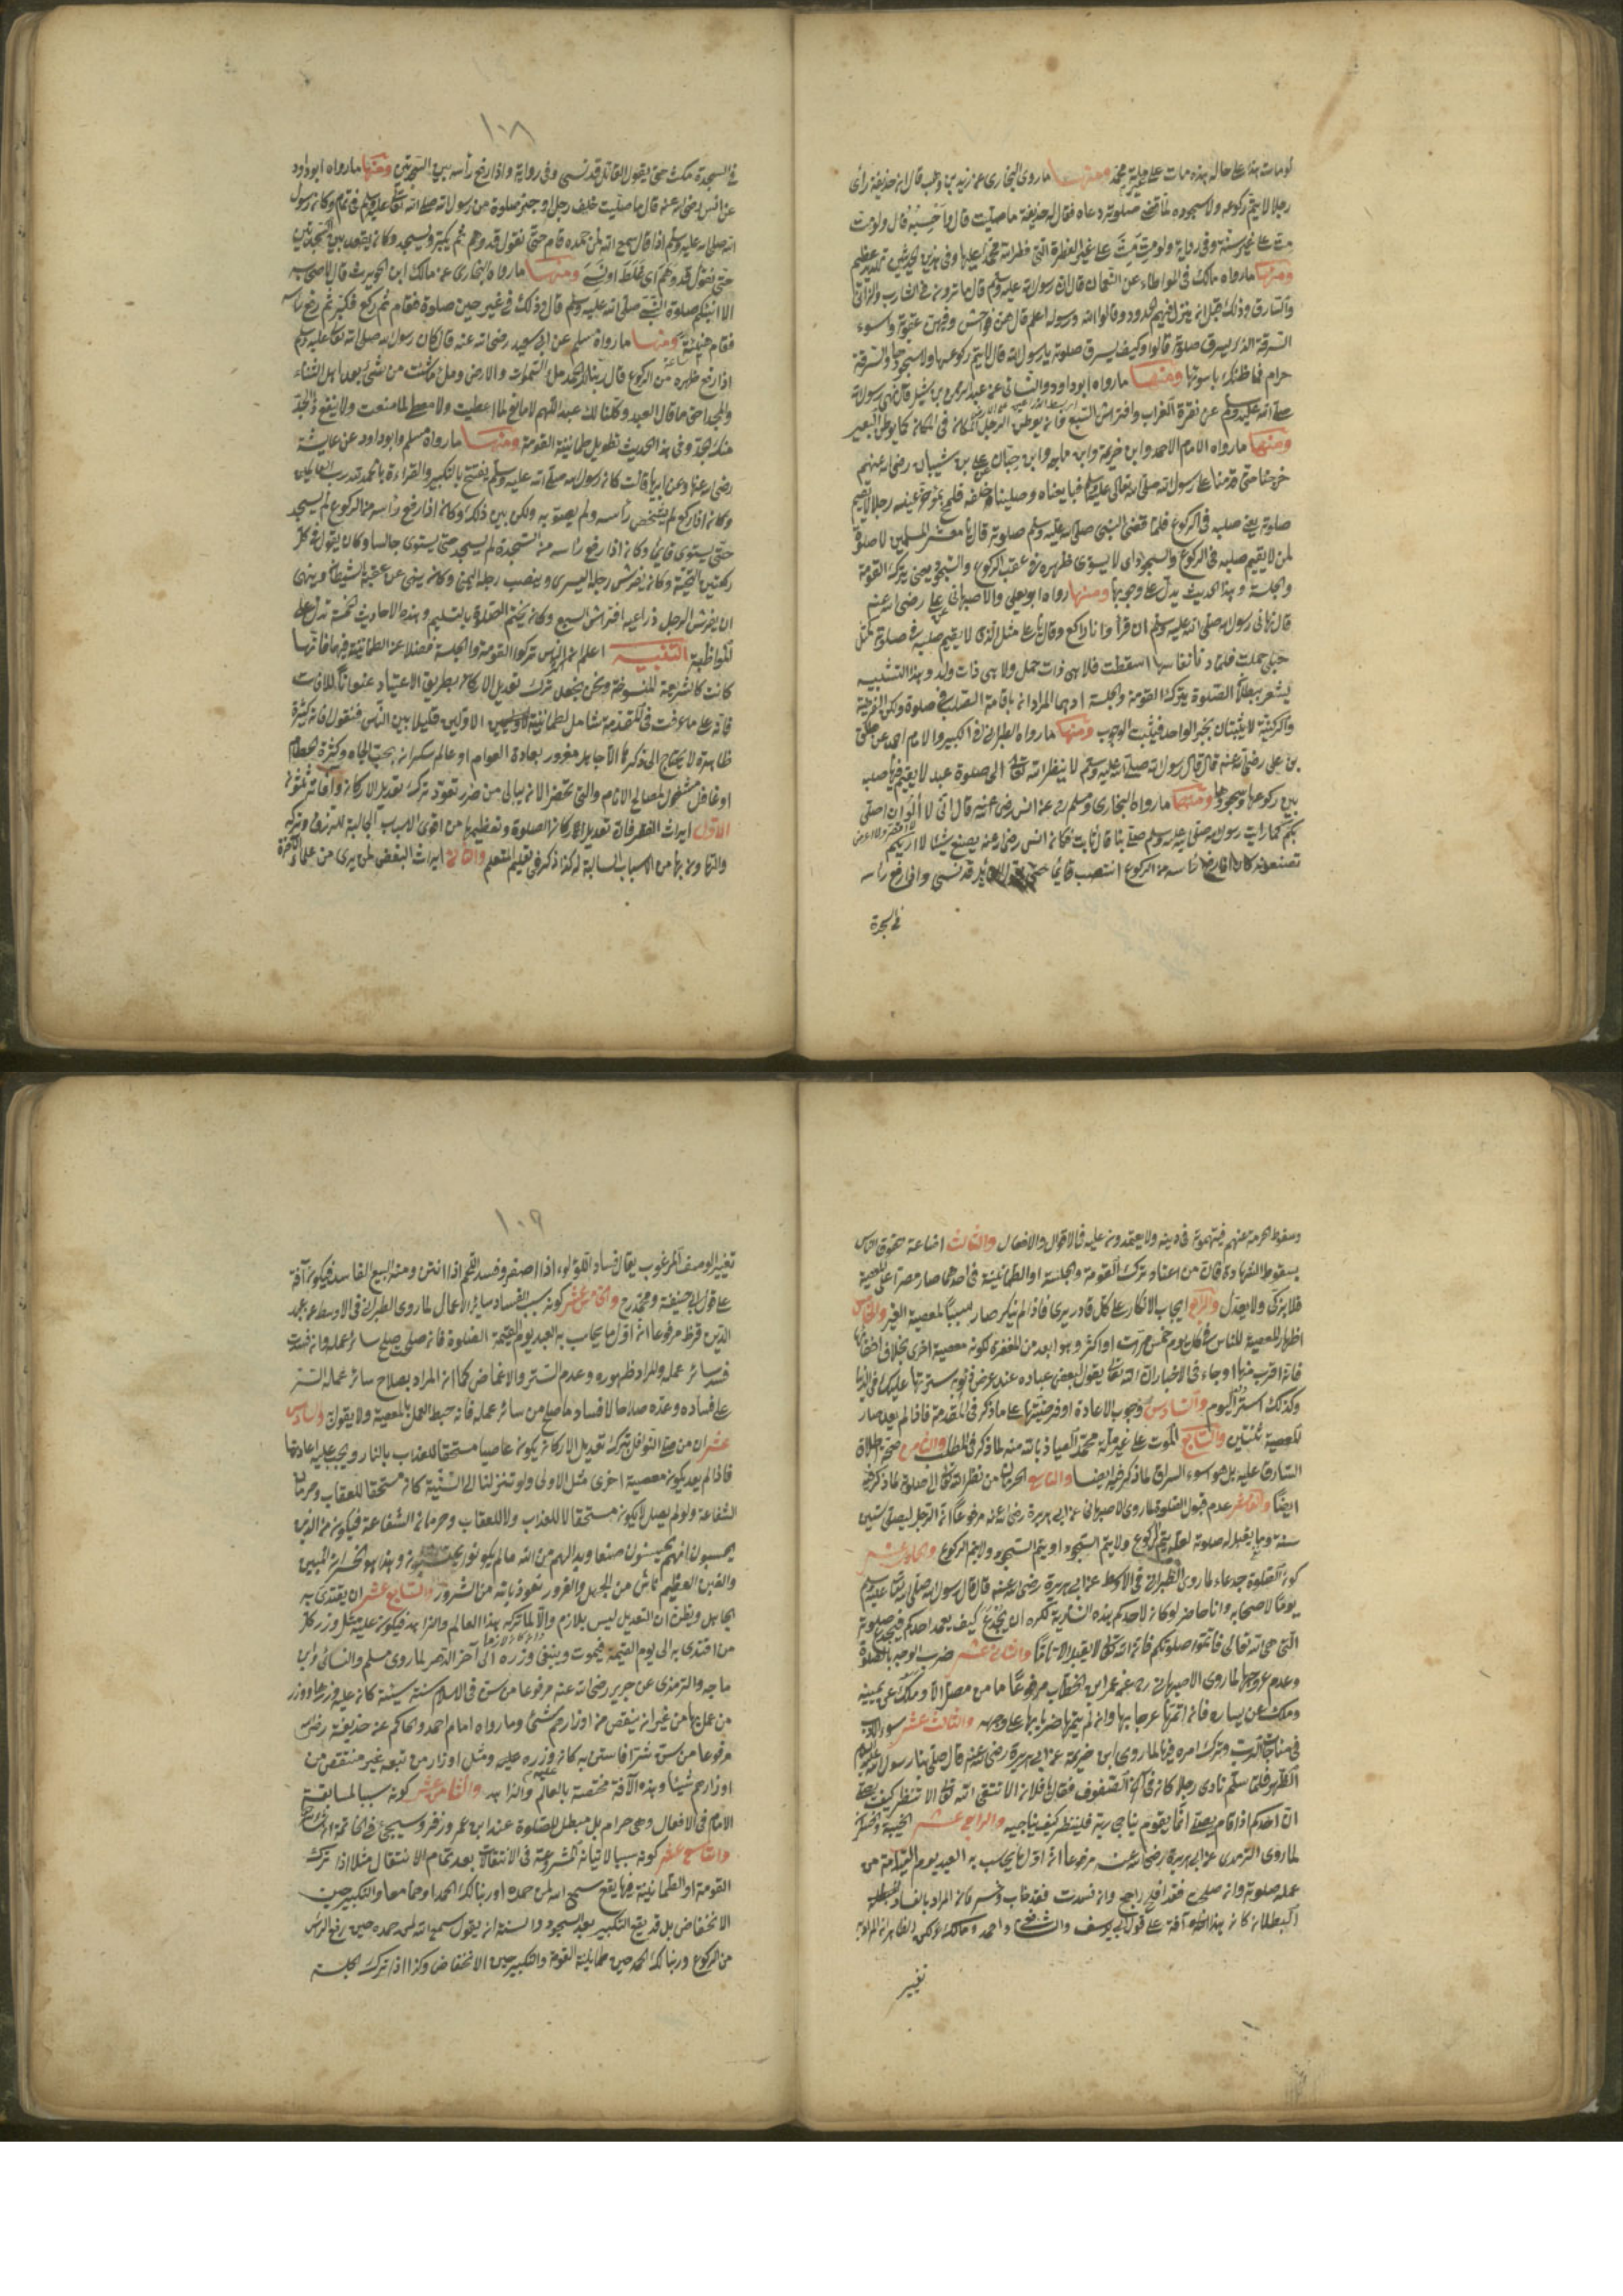 لو مات هذا على حاله هذه مات على غير ملة محمد ومنها ما روى البخارى عن زيد بن وهب قال ان حذيفة رأى
رجلا لا يتم ركوعه ولا سجوده فلما قضى صلوته دعاه فقال له حذيفة ما صليت قال واحسبه قال ولو مت
مت على غير سنة وفى رواية ولو مت مت على غير الفطرة التى فطر الله محمدا عليها وفى هذين الحديثين تهديد عظيم
ومنها ما رواه مالك فى الموطاء عن النعمان قال ان رسول الله عليه وسلم قال ما ترون فى الشارب والزانى
والسارق وذلك قبل ان ينزل فيهم الحدود وقالوا الله ورسوله اعلم قال هن فواحش وفيهن عقوبة واسوء
السرقة الذى يسرق صلوته قالوا وكيف يسرق صلوته يا رسول الله قال لا يتم ركوعها ولا سجودها والسرقة
حرام فما ظنك باسوئها ومنها ما رواه ابو داود والنسائى عن عبد الرحمن بن شبل قال نهى رسول الله
صلى الله عليه وسلم عن نقرة الغراب وافتراش السبع وان يوطن الرجل المكان فى المكان كما يوطن البعير
ومنها ما رواه الامام الاحمد وابن خزيمة وابن ماجه وابن حبان عن على بن شيبان رضى الله عنهم
خرجنا حتى قدمنا على رسول الله صلى الله تعالى عليه وسلم فبايعناه وصلينا خلفه فلمح بمؤخر عينه رجلا لا يقيم
صلوته يعنى صلبه فى الركوع فلما قضى النبى صلى الله عليه وسلم صلوته قال يا معشر المسلمين لا صلوة
لمن لا يقيم صلبه فى الركوع والسجود اى لا يسوى ظهره عقب الركوع والسجود يعنى يترك القومة
والجلسة وهذا الحديث يدل على وجوبها ومنها رواه ابو يعلى والاصبهانى عن على رضى الله عنهم
قال نهانى رسول الله صلى الله عليه وسلم ان اقرأ وانا راكع وقال يا على مثل الذى لا يقيم صلبه فى صلوته كمثل
حبلى حملت فلما دنا نفاسها اسقطت فلا هى ذات حمل ولا هى ذات ولد وهذا التشبيه
يشعر ببطلان الصلوة بترك القومة والجلسة اذ هما المراد ان باقامة الصلب فى صلوة ولكن الفرضية
والركنية لا يثبتان بخبر الواحد فيثبت الوجوب ومنها ما رواه الطبرانى فى الكبير والامام احمد عن طلق
بن على رضى الله عنه قال قال رسول الله صلى الله عليه وسلم لا ينظر الله تعالى الى صلوة عبد لا يقيم فيها صلبه
بين ركوعها وسجودها ومنها ما رواه البخارى ومسلم عن انس رضى الله عنه قال انى لا آلو ان اصلى
بكم كما رايت رسول الله صلى الله عليه وسلم يصلى بنا قال ثابت فكان انس رضى الله عنه يصنع شيئا لا اريكم
تصنعونه كان اذا رفع رأسه من الركوع انتصب قائما حتى يقول القائل قد نسى واذا رفع رأسه
فى السجدة
١٠٨
فى السجدة مكث حتى يقول القائل قد نسى وفى رواية واذا رفع رأسه بين السجدتين ومنها ما رواه ابو داود
عن انس رضى الله عنه قال ما صليت خلف رجل اوجز صلوة من رسول الله صلى الله تعالى عليه وسلم فى تمام وكان رسول
الله صلى الله عليه وسلم اذا قال سمع الله لمن حمده قام حتى نقول قد وهم ثم يكبر ويسجد وكان يقعد بين السجدتين
حتى نقول قد وهم اى غلط او نسى ومنها ما رواه البخارى عن مالك ابن الحويرث قال لاصحابه
الا انبئكم صلوة النبى صلى الله عليه وسلم قال وذلك فى غير حين صلوة فقام ثم ركع فكبر ثم رفع رأسه
فقام هنيئة ومنها ما رواه مسلم عن ابى سعيد رضى الله عنه قال كان رسول الله صلى الله تعالى عليه وسلم
اذا رفع ظهره من الركوع قال ربنا لك الحمد ملأ السموات والارض وملأ ما شئت من شئ بعد اهل الثناء
والمجد احق ما قال العبد وكلنا لك عبد اللهم لا مانع لما اعطيت ولا معطى لما منعت ولا ينفع ذا الجد
منك الجد وفى هذا الحديث تطويل طمانينة القومة ومنها ما رواه مسلم وابو داود عن عايشة
رضى الله عنها وعن ابيها قالت كان رسول الله صلى الله عليه وسلم يفتتح بالتكبير والقراءة بالحمد لله رب العالمين
وكان اذا ركع لم يشخص رأسه ولم يصوبه ولكن بين ذلك وكان اذا رفع رأسه من الركوع لم يسجد
حتى يستوى قائما وكان اذا رفع رأسه من السجدة لم يسجد حتى يستوى جالسا وكان يقول فى كل
ركعتين التحية وكان يفرش رجله اليسرى وينصب رجله اليمنى وكان ينهى عن عقبة الشيطان وينهى
ان يفرش الرجل ذراعيه افتراش السبع وكان يختم الصلوة بالتسليم وهذه الاحاديث الخمسة تدل على
المواظبة التنبيه اعلم ان اكثر الناس تركوا القومة والجلسة فضلا عن الطمانينة فيهما فانها
كانت كالشريعة المنسوخة ونحن نجعل ترك تعديل الاركان بطريق الاعتياد عنوانا للآفات
فانه على ما عرفت فى المقدمة شامل لطمانينة الاولين قليلا بين الناس فنقول فانه كثيرة
ظاهرة لا يحتاج الى ذكرها الا جاهل مغرور بعادة العوام او عالم سكران بحب الجاه وكثرة الحطام
او غافل مشغول لمصالح الانام والتى تحضر الان ببالى من ضرر تعود ترك تعديل الاركان وآفاته ثلثون
الاول ايراث الفقر فان تعديل الاركان الصلوة وتعظيمها من اقوى الاسباب الجالبة للرزق وتركه
والتهاون بها من الاسباب السالبة له كذا ذكر فى تعليم المتعلم والثانى ايراث البغض لمن يرى من علماء الآخرة
وسقوط الحرمة عنهم فيتهمونه فى دينه ولا يعتمدون عليه فى الاقوال والافعال والثالث اضاعة حقوق الناس
بسقوط الشهادة فان من اعتاد ترك القومة والجلسة او الطمانينة فى احدهما صار مصرا على المعصية
فلا يزكى ولا يعدل والرابع ايجاب الانكار على كل قادر يرى فاذا لم ينكر صار سببا لمعصية الغير والخامس
اظهار المعصية للناس فى كل يوم خمس مرات او اكثر وهو ابعد من المغفرة لكونه معصية اخرى بخلاف اخفائها
فانه اقرب منها وجاء فى الاخبار ان الله تعالى يقول لبعض عباده عند عرض ذنوبه سترتها عليك فى الدنيا
وكذلك استر اليوم والسادس وجوب الاعادة او فرضيتها على ما ذكر فى المقدمة فاذا لم يعد صار
المعصية ثنتين والسابع الموت على غير ملة محمد العياذ بالله منه لما ذكر فى المطلب والثامن صحة اطلاق
السارق عليه بل هو اسوء السراق لما ذكر فيه ايضا والتاسع الحرمان من نظر الله تعالى الى صلوته لما ذكر فيه
ايضا والعاشر عدم قبول الصلوة لما روى الاصبهانى عن ابى هريرة رضى الله عنه مرفوعا ان الرجل ليصلى ستين
سنة وما يقبل له صلوة لعله يتم الركوع ولا يتم السجود او يتم السجود ولا يتم الركوع والحادى عشر
كون الصلوة جدعاء لما روى الطبرانى فى الاوسط عن ابى هريرة رضى الله عنه قال قال رسول الله صلى الله تعالى عليه وسلم
يوما لاصحابه وانا حاضر لو كان لاحدكم هذه السارية لكره ان يجدع كيف يعمد احدكم فيجدع صلوته
التى هى لله تعالى فاتموا صلوتكم فان الله تعالى لا يقبل الا تاما والثانى عشر ضرب الوجه بالصلوة
وعدم عروجها لما روى الاصبهانى عن عمر ابن الخطاب مرفوعا ما من مصل الا وملك عن يمينه
وملك عن يساره فان اتمها عرجا بها وان لم يتمها ضربا بها على وجهه والثالث عشر سوء الادب
فى مناجات الرب وترك امره فيها لما روى ابن خزيمة عن ابى هريرة رضى الله عنه قال صلى بنا رسول الله عليه السلام
الظهر فلما سلم نادى رجلا كان فى آخر الصفوف فقال يا فلان الا تتقى الله تعالى الا تنظر كيف تصلى
ان احدكم اذا قام يصلى انما يقوم يناجى ربه فلينظر كيف يناجيه والرابع عشر الخيبة والخسر
لما روى الترمذى عن ابى هريرة رضى الله عنه مرفوعا ان اول ما يحاسب به العبد يوم القيامة من
عمله صلوته وان صلحت فقد افلح وانجح وان فسدت فقد خاب وخسر فان المراد بالفساد
البطلان كان هذا آفة على قول ابى يوسف والشافعى واحمد ومالك ولكن الظاهر ان المراد به
تغيير
١٠٩
تغيير الوصف المرغوب يقال فساد اللؤلؤ اذا اصفر وفسد اللحم اذا انتن ومنه البيع الفاسد فيكون آفة
على قول ابى حنيفة ومحمد رح والخامس عشر كونه سبب الفساد سائر الاعمال لما روى الطبرانى فى الاوسط عن عبد
الله بن قرط مرفوعا ان اول ما يحاسب به العبد يوم القيمة الصلوة فان صلحت صلح سائر عمله وان فسدت
فسد سائر عمله والمراد ظهوره وعدم الستر والاغماض كما ان المراد بصلاح سائر عمله الستر
على فساده وعده صلاحا لا فساد ما صلح من سائر عمله فانه حبط العمل بالمعصية ولا يقول والسادس
عشر ان من صلى النوافل بترك تعديل الاركان يكون عاصيا مستحقا للعذاب بالنار ويجب عليه اعادتها
فاذا لم يعد يكون معصية اخرى مثل الاولى ولو تنزلنا الى السنية كان مستحقا للعقاب وحرمان
الشفاعة ولو لم يصل لا يكون مستحقا لا للعذاب ولا للعقاب وحرمان الشفاعة فيكون من الذين
يحسبون انهم يحسنون صنعا وبدا لهم من الله ما لم يكونوا يحتسبون وهذا هو الخسران المبين
والغبن العظيم ناش من الجهل والغرور نعوذ بالله من الشرور والسابع عشر ان يقتدى به
الجاهل ويظن ان التعديل ليس بلازم والا لما تركه هذا العالم والزاهد فيكون عليه مثل وزر كل
من اقتدى به الى يوم القيمة فيموت ويبقى وزره الى آخر الدهر لما روى مسلم والنسائى وابن
ماجه والترمذى عن جرير رضى الله عنه مرفوعا من سن فى الاسلام سنة سيئة كان عليه وزرها ووزر
من عمل بها من غير ان ينقص من اوزارهم شئ وما رواه امام احمد والحاكم عن حذيفة رضى الله
مرفوعا من سن شرا فاستن به كان وزره عليه ومثل اوزار من تبعه غير منتقص من
اوزارهم شيئا وهذه الآفة مختصة بالعالم والزاهد والثامن عشر كونه سببا لمسابقة
الامام فى الافعال وهى حرام بل مبطل للصلوة عند ابن عمر وزفر وسيجئ فى الخاتمة ان شاء الله
والتاسع عشر كونه سببا لاتيان المشروعة فى الانتقالات بعد تمام الانتقال مثلا اذا ترك
القومة او الطمانينة فيها يقع سمع الله لمن حمده او ربنا لك الحمد او هما معا والتكبير حين
الانخفاض بل قد يقع التكبير بعد السجود والسنة ان يقول سمع الله لمن حمده حين رفع الرأس
من الركوع وربنا لك الحمد حين طمانينة القومة والتكبير حين الانخفاض وكذا اذا ترك الجلسة